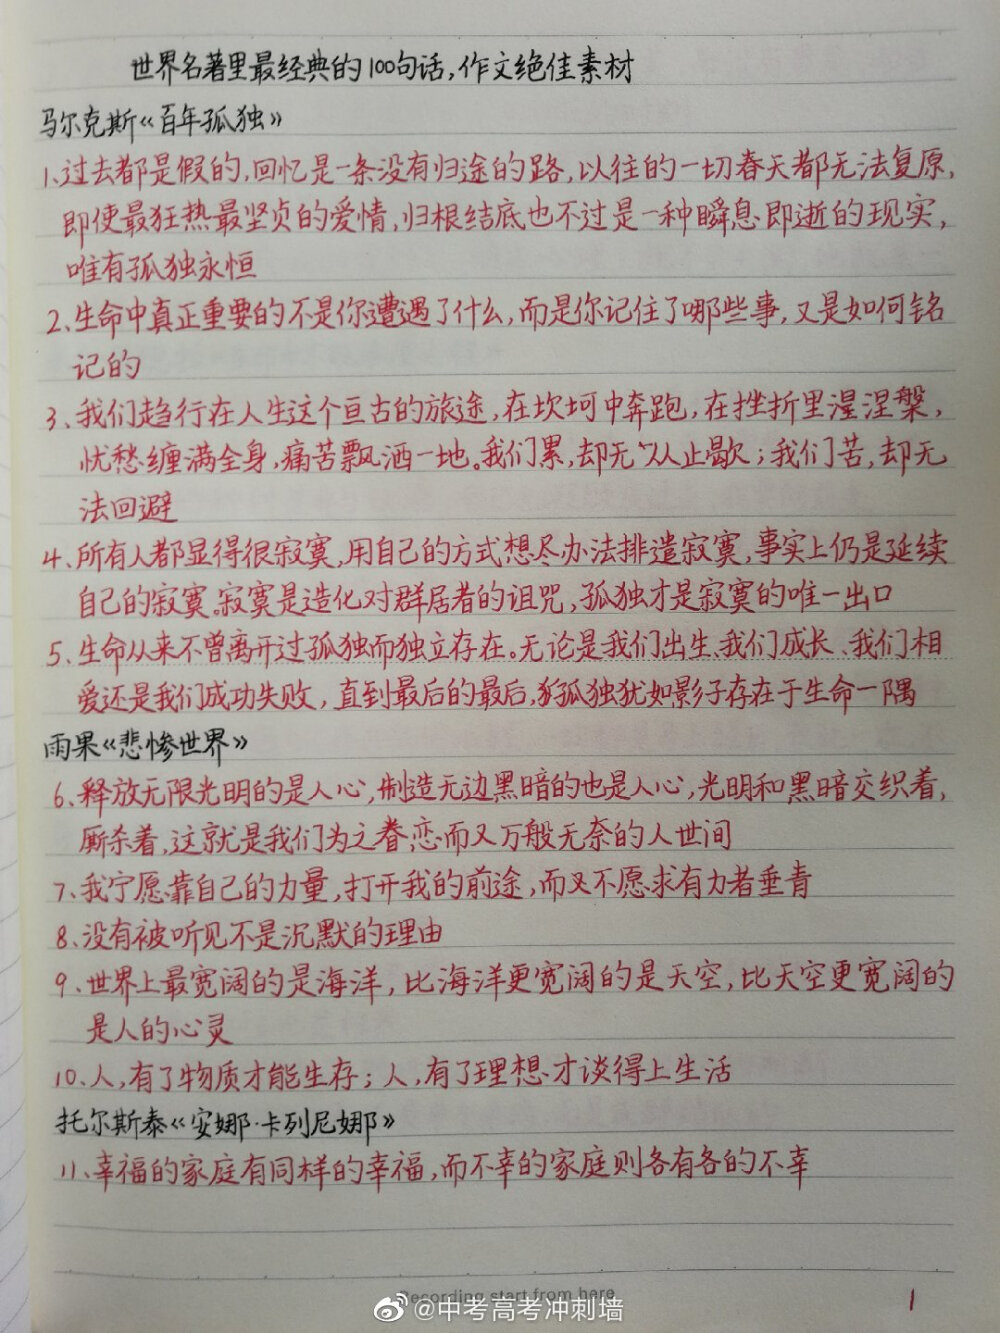 世界名著里最经典的100句话,作文绝佳素材
马尔克斯《百年孤独》
1、过去都是假的,回忆是一条没有归途的路,以往的一切春天都无法复原,
即使最狂热最坚贞的爱情,归根结底也不过是一种瞬息即逝的现实,
唯有孤独永恒
2、生命中真正重要的不是你遭遇了什么,而是你记住了哪些事,又是如何铭
记的
3、我们趋行在人生这个亘古的旅途,在坎坷中奔跑,在挫折里涅槃,
忧愁缠满全身,痛苦飘洒一地。我们累,却无从止歇;我们苦,却无
法回避
4、所有人都显得很寂寞,用自己的方式想尽办法排遣寂寞,事实上仍是延续
自己的寂寞。寂寞是造化对群居者的诅咒,孤独才是寂寞的唯一出口
5、生命从来不曾离开过孤独而独立存在。无论是我们出生、我们成长、我们相
爱还是我们成功失败,直到最后的最后,孤独犹如影子存在于生命一隅
雨果《悲惨世界》
6、释放无限光明的是人心,制造无边黑暗的也是人心,光明和黑暗交织着,
厮杀着,这就是我们为之眷恋而又万般无奈的人世间
7、我宁愿靠自己的力量,打开我的前途,而又不愿求有力者垂青
8、没有被听见不是沉默的理由
9、世界上最宽阔的是海洋,比海洋更宽阔的是天空,比天空更宽阔的
是人的心灵
10、人,有了物质才能生存;人,有了理想才谈得上生活
托尔斯泰《安娜·卡列尼娜》
11、幸福的家庭有同样的幸福,而不幸的家庭则各有各的不幸
Recording start from here
1
@中考高考冲刺墙